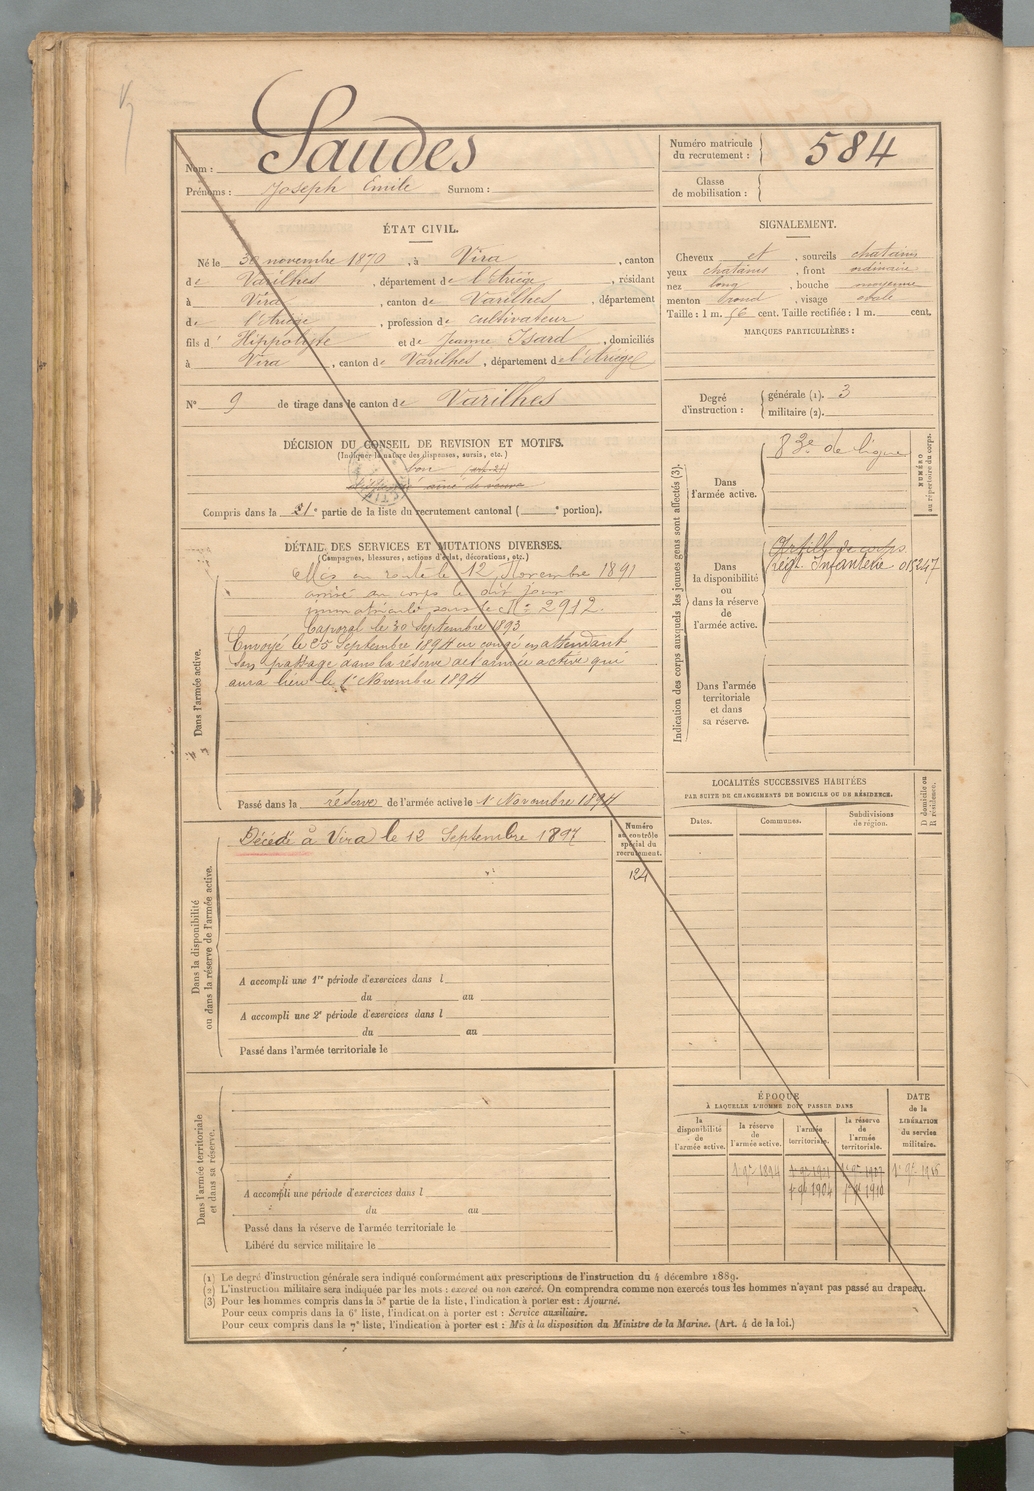 Nom : Saudes
Prénoms : Joseph Emile Surnom :
Numéro matricule
du recrutement : 584
Classe
de mobilisation :
ÉTAT CIVIL.
Né le 30 novembre 1870, à Vira, canton
de Varilhes, département de l'Ariège, résidant
à Vira, canton de Varilhes, département
de l'Ariège, profession de cultivateur
fils d' Hippolyte et de Jeanne Isard, domiciliés
à Vira, canton de Varilhes, département de l'Ariège
N° 9 de tirage dans le canton de Varilhes
SIGNALEMENT.
Cheveux et, sourcils chatains
yeux chatains, front ordinaire
nez long, bouche moyenne
menton rond, visage ovale
Taille : 1 m. 56 cent. Taille rectifiée : 1 m. cent.
MARQUES PARTICULIÈRES :
Degré
d'instruction :
générale (1). 3
militaire (2).
DÉCISION DU CONSEIL DE REVISION ET MOTIFS.
(Indiquer la nature des dispenses, sursis, etc.)
bon (art. 21)
ainé de veuve
Compris dans la 21e partie de la liste du recrutement cantonal ( e portion).
DÉTAIL DES SERVICES ET MUTATIONS DIVERSES.
(Campagnes, blessures, actions d'éclat, décorations, etc.)
Dans l'armée active.
Mis en route le 12 Novembre 1891
arrivé au corps le dit jour
immatriculé sous le N° 2912.
Caporal le 30 Septembre 1893
Envoyé le 25 Septembre 1894 en congé en attendant
son passage dans la réserve de l'armée active qui
aura lieu le 1er Novembre 1894
Passé dans la réserve de l'armée active le 1er Novembre 1894
Indication des corps auxquels les jeunes gens sont affectés (3).
Dans
l'armée active.
83e de ligne
NUMÉRO
au répertoire du corps.
Dans
la disponibilité
ou
dans la réserve
de
l'armée active.
Artillie de corps
régt. Infanterie 015247
Dans l'armée
territoriale
et dans
sa réserve.
Dans la disponibilité
ou dans la réserve de l'armée active.
Décédé à Vira le 12 Septembre 1897
Numéro
au contrôle
spécial du
recrutement.
124
A accompli une 1re période d'exercices dans l
du au
A accompli une 2e période d'exercices dans l
du au
Passé dans l'armée territoriale le
LOCALITÉS SUCCESSIVES HABITÉES
PAR SUITE DE CHANGEMENTS DE DOMICILE OU DE RÉSIDENCE.
Dates.
Communes.
Subdivisions
de région.
D domicile ou
R résidence.
Dans l'armée territoriale
et dans sa réserve.
A accompli une période d'exercices dans l
du au
Passé dans la réserve de l'armée territoriale le
Libéré du service militaire le
ÉPOQUE
À LAQUELLE L'HOMME DOIT PASSER DANS
la
disponibilité
de
l'armée active.
la réserve
de
l'armée active.
l'armée
territoriale.
la réserve
de
l'armée
territoriale.
DATE
de la
LIBÉRATION
du service
militaire.
1er 9bre 1894
1er 9bre 1904
1er 9bre 1910
1er 9bre 1916
(1) Le degré d'instruction générale sera indiqué conformément aux prescriptions de l'instruction du 4 décembre 1889.
(2) L'instruction militaire sera indiquée par les mots : exercé ou non exercé. On comprendra comme non exercés tous les hommes n'ayant pas passé au drapeau.
(3) Pour les hommes compris dans la 5e partie de la liste, l'indication à porter est : Ajourné.
Pour ceux compris dans la 6e liste, l'indication à porter est : Service auxiliaire.
Pour ceux compris dans la 7e liste, l'indication à porter est : Mis à la disposition du Ministre de la Marine. (Art. 4 de la loi.)